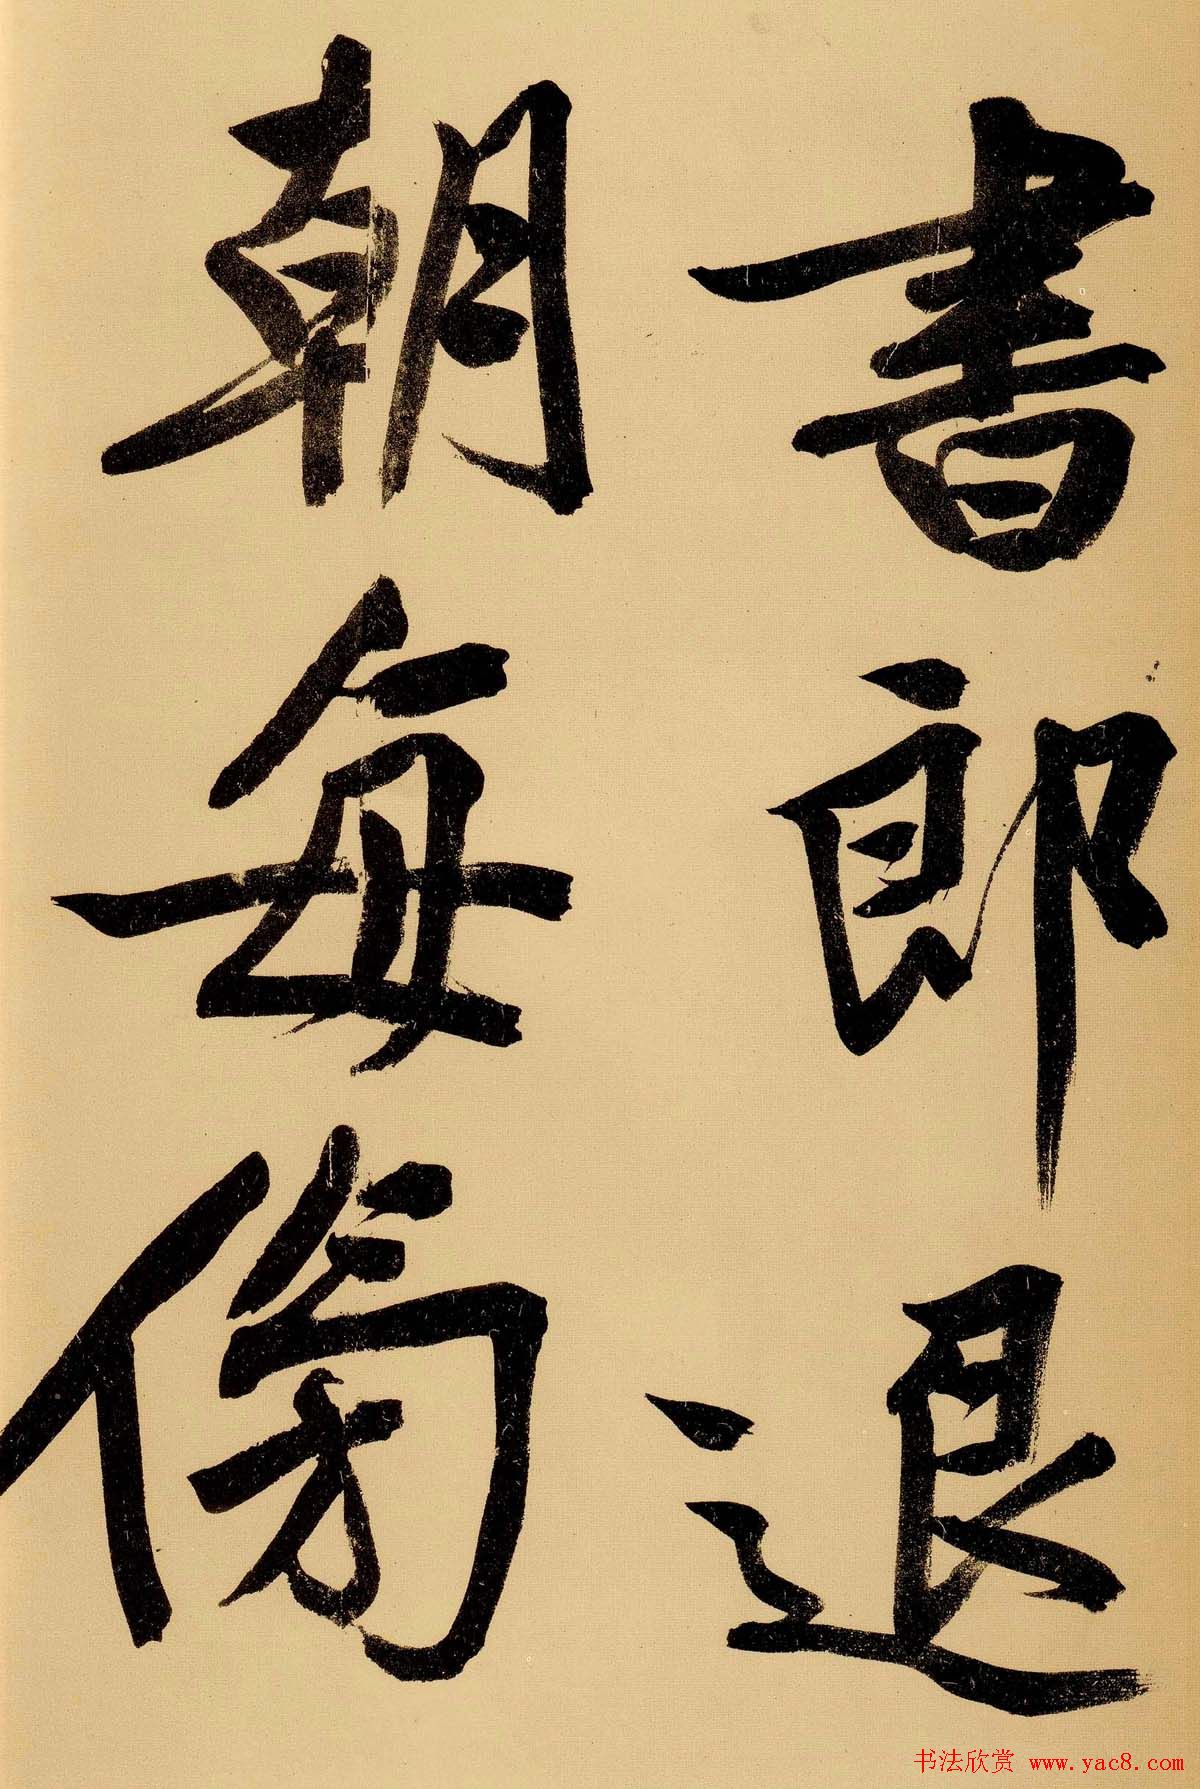 書郎退
朝每傍
书法欣赏 www.yac8.com